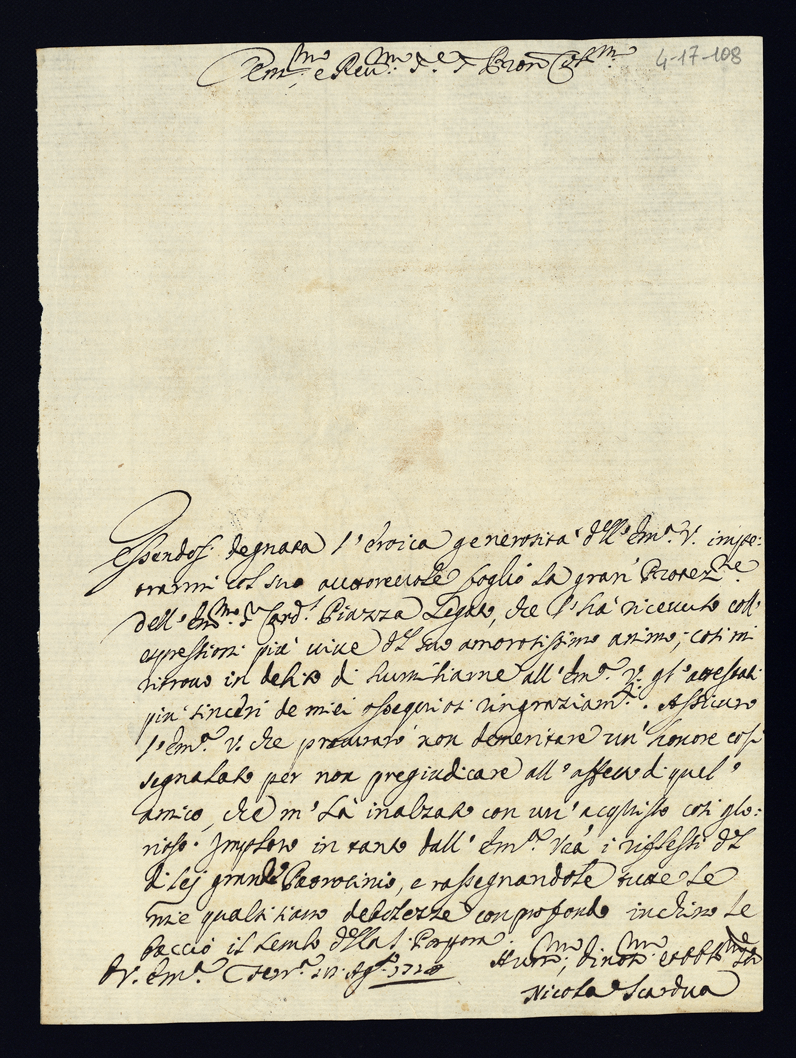 Em.mo e Reu.mo S.e e Pron Col.mo
4-17-108
Essendosi degnata l'eroica generosità dell'Em.a V. impe:
trarmi col suo auttoreuole foglio la gran Protez.ne
dell'Em.mo S.r Card.l Piazza Legato, che l'hà riceuuto coll'
espressioni più uiue del suo amorosissimo animo; così mi
ritrouo in debito di humiliarne all'Em.a V. gl'attestati
più sinceri de miei ossequiosi ringraziam.ti. Assicuro
l'Em.a V. che procurarò non demeritare un'honore così
segnalato per non pregiudicare all'affetto di quel'
amico, che m'hà inalzato con un'acquisto così glo:
rioso. Imploro in tanto dall'Em.a V.ra i riflessi del
di lei grande Patrocinio, e rassegnandole tutte le
mie quali siano debolezze con profondo inchino le
baccio il lembo della S. Porpora.
D V. Em.a Ferr.a Ag.to
Hum.mo, Diuot.mo et Obb.mo
Nicola Scadua